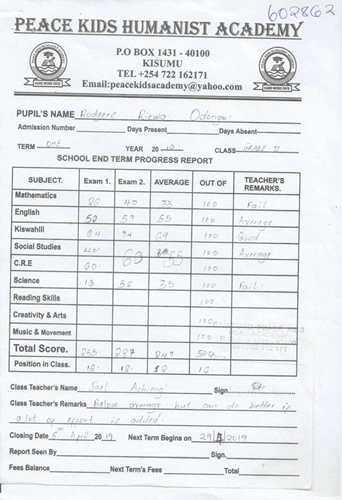 602862
PEACE KIDS HUMANIST ACADEMY
P.O BOX 1431 - 40100
KISUMU
TEL +254 722 162171
Email:peacekidsacademy@yahoo.com
PUPIL'S NAME Odongo
Admission Number Days Present Days Absent
TERM ONE YEAR 20 CLASS GRADE
SCHOOL END TERM PROGRESS REPORT
SUBJECT. Exam 1. Exam 2. AVERAGE OUT OF TEACHER'S REMARKS.
Mathematics 40 33 100 Fail
English 52 57 55 100 Average
Kiswahili 64 74 69 100 Good
Social Studies 40 60 55 100 Average
C.R.E 60 100
Science 13 56 35 100 Fail
Reading Skills 100
Creativity & Arts 100
Music & Movement 100
Total Score. 255 287 247 500
Position in Class. 12 12 12 16
Class Teacher's Name Achieng Sign.
Class Teacher's Remarks Below average but can do better if
a lot of effort is added
Closing Date 5th April 2019 Next Term Begins on 29/4/2019
Report Seen By Sign.
Fees Balance Next Term's Fees Total